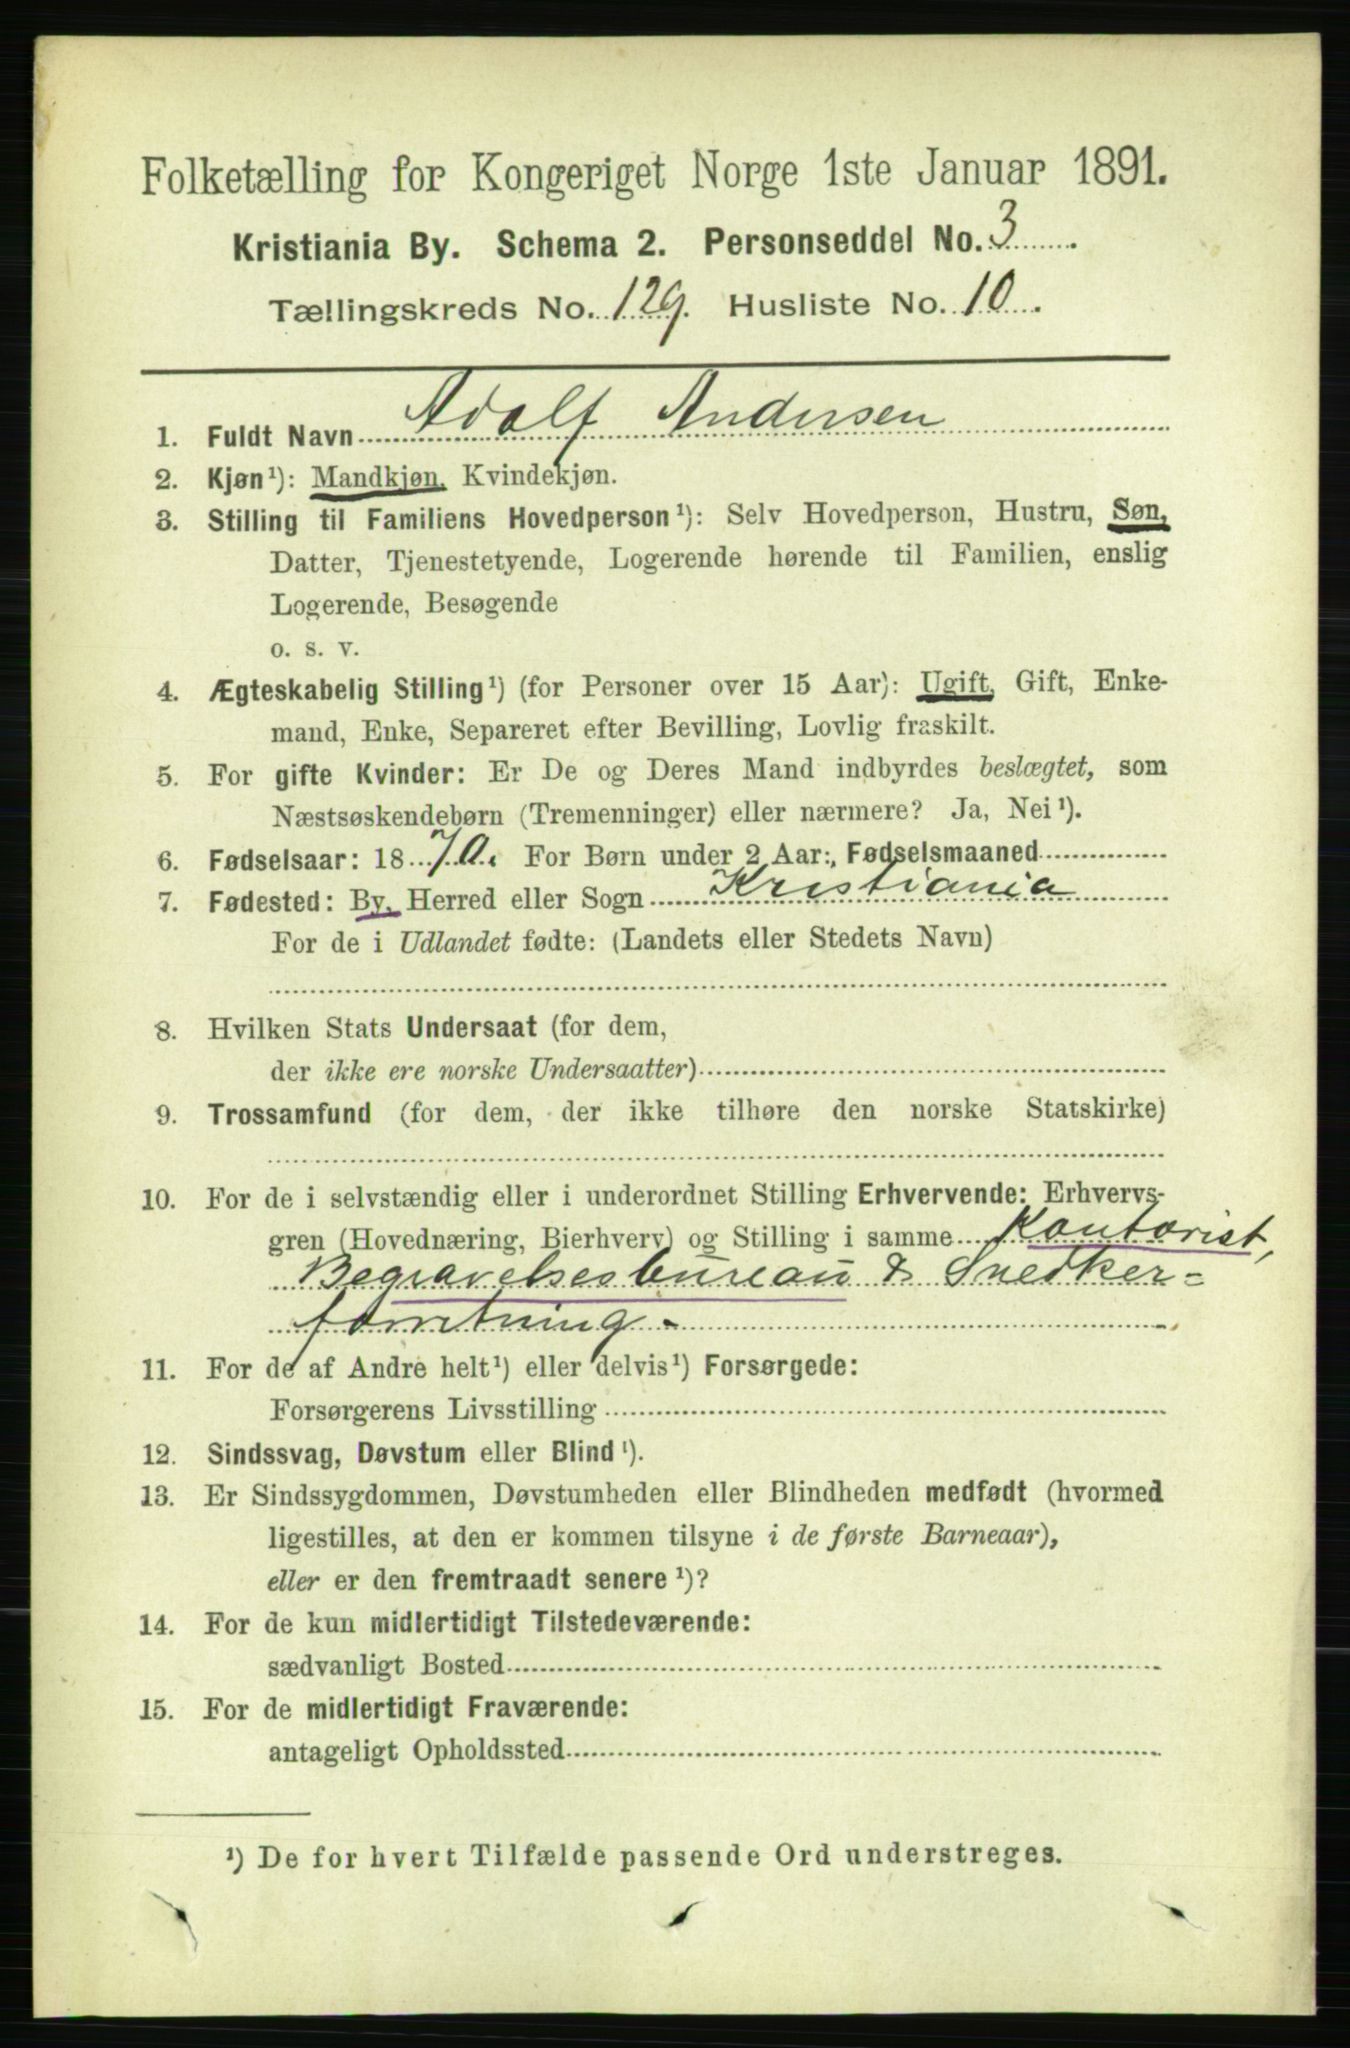 Folketælling for Kongeriget Norge 1ste Januar 1891.
Kristiania By. Schema 2. Personseddel No. 3
Tællingskreds No. 129. Husliste No. 10.
1. Fuldt Navn Adolf Andersen
2. Kjøn¹): Mandkjøn, Kvindekjøn.
3. Stilling til Familiens Hovedperson¹): Selv Hovedperson, Hustru, Søn,
Datter, Tjenestetyende, Logerende hørende til Familien, enslig
Logerende, Besøgende
o. s. v.
4. Ægteskabelig Stilling¹) (for Personer over 15 Aar): Ugift, Gift, Enke-
mand, Enke, Separeret efter Bevilling, Lovlig fraskilt.
5. For gifte Kvinder: Er De og Deres Mand indbyrdes beslægtet, som
Næstsøskendebørn (Tremenninger) eller nærmere? Ja, Nei¹).
6. Fødselsaar: 1870. For Børn under 2 Aar: Fødselsmaaned
7. Fødested: By, Herred eller Sogn Kristiania
For de i Udlandet fødte: (Landets eller Stedets Navn)
8. Hvilken Stats Undersaat (for dem,
der ikke ere norske Undersaatter)
9. Trossamfund (for dem, der ikke tilhøre den norske Statskirke)
10. For de i selvstændig eller i underordnet Stilling Erhvervende: Erhvervs-
gren (Hovednæring, Bierhverv) og Stilling i samme Kontorist,
Begravelsesbureau & Snedker=
forretning.-
11. For de af Andre helt¹) eller delvis¹) Forsørgede:
Forsørgerens Livsstilling
12. Sindssvag, Døvstum eller Blind¹).
13. Er Sindssygdommen, Døvstumheden eller Blindheden medfødt (hvormed
ligestilles, at den er kommen tilsyne i de første Barneaar),
eller er den fremtraadt senere¹)?
14. For de kun midlertidigt Tilstedeværende:
sædvanligt Bosted
15. For de midlertidigt Fraværende:
antageligt Opholdssted
¹) De for hvert Tilfælde passende Ord understreges.